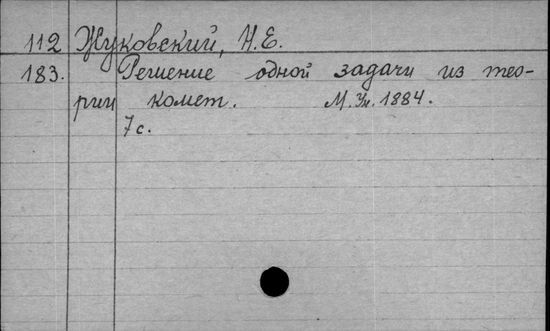 112 Жуковский, Н.Е.
183. Решение одной задачи из тео-
рии комет. М. Ун. 1884.
7с.